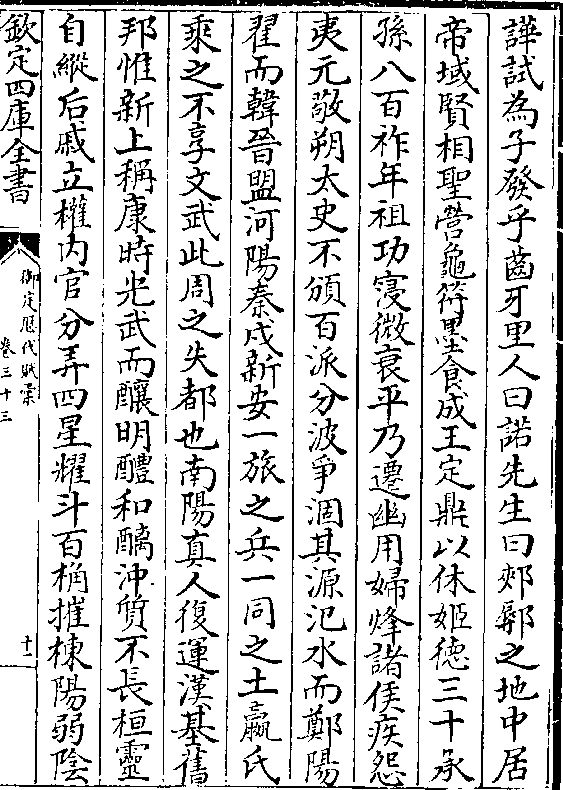 譁試為子發乎齒牙里人曰諾先生曰郟鄏之地中居
帝域賢相聖營龜符墨食成王定鼎以休姬徳三十承
孫八百祚年祖功寖微衰平乃遷幽用婦烽諸侯疾怨
夷元敬朔太史不頒百派分波爭涸其源汜水而鄭陽
翟而韓晉盟河陽秦戍新安一旅之兵一同之土嬴氏
乘之不享文武此周之失都也南陽真人復運漢基舊
邦惟新上稱康時光武而釀明醴和醨沖質不長桓靈
自縱后戚立權内官分弄四星耀斗百桷摧棟陽弱陰
欽定四庫全書
御定歷代賦彙
卷三十三
十一